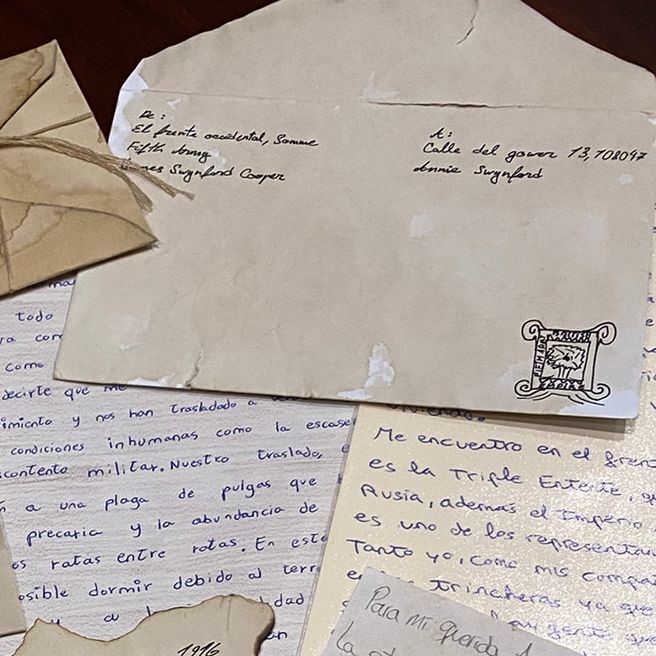 De:
El frente occidental, Somme
Fifth Army
Swynford Cooper
A:
Calle del gower 13, 108097
Annie Swynford
todo
como
decirte que me
imiento y nos han trasladado a
condiciones inhumanas como la escase
scontento militar. Nuestro traslado,
a una plaga de pulgas que
precaria y la abundancia de
os ratas entre ratas. En este
osible dormir debido al terr
Me encuentro en el frent
es la Triple Entente, qu
Rusia, ademas el Imperio
es uno de los representan
Tanto yo, como mis compañ
trincheras ya que
gente que
Para mi querida A
la
1916